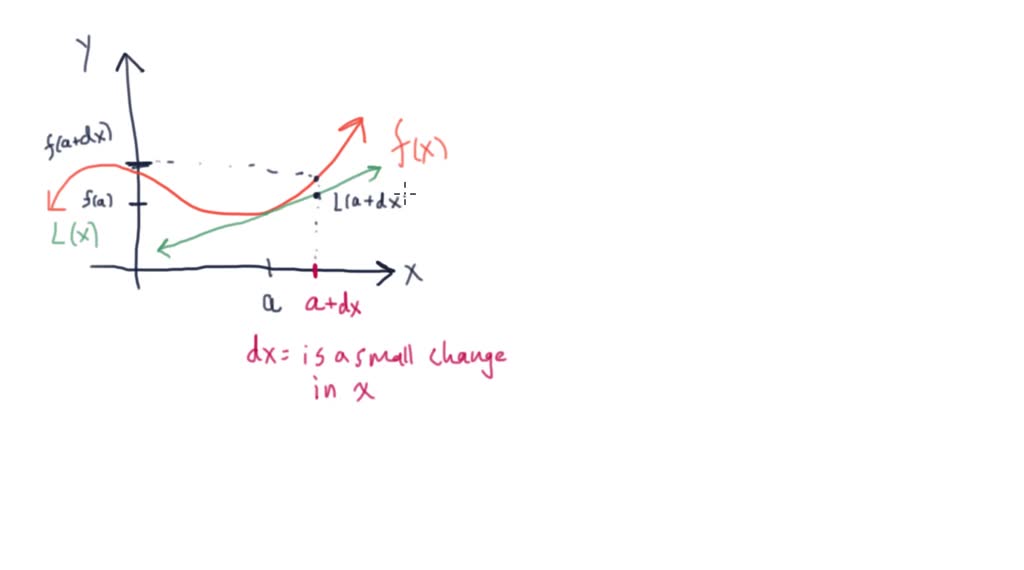 y
f(a+dx)
f(x)
f(a)
L(a+dx)
L(x)
x
a
a+dx
dx= is a small change
in x